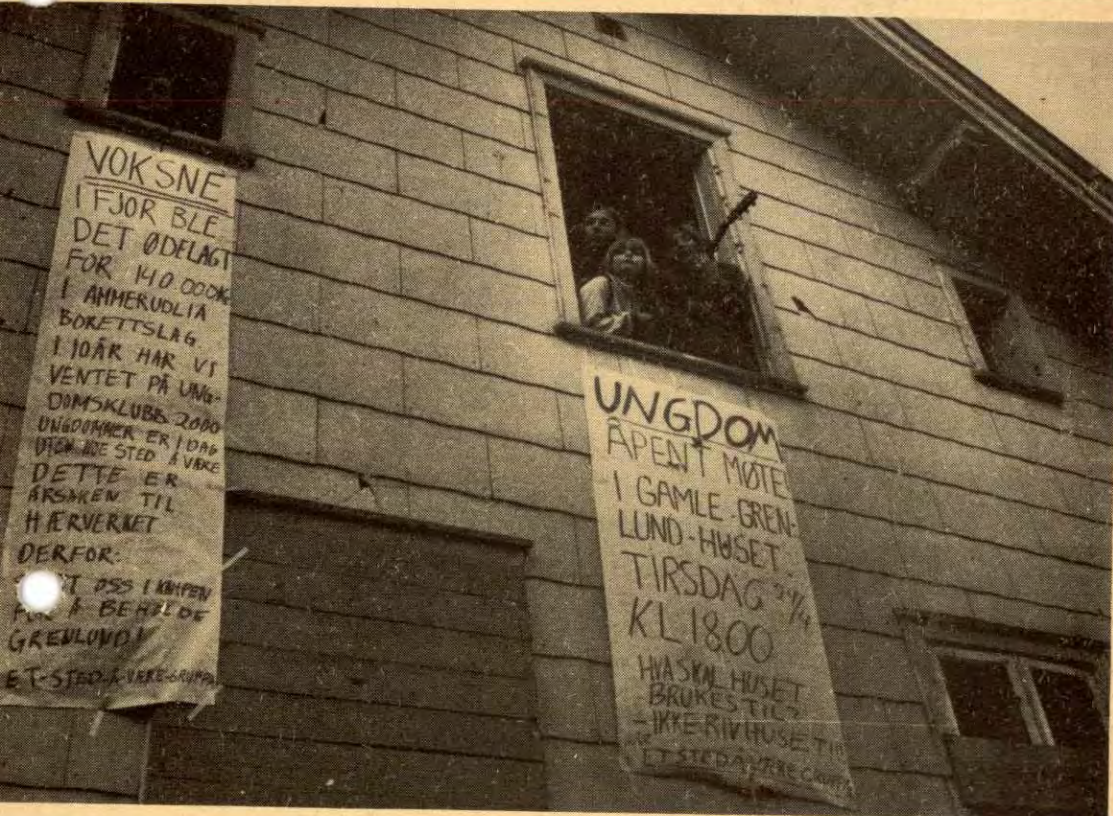 VOKSNE
I FJOR BLE
DET ØDELAGT
FOR 140 000KR
I AMMERUDLIA
BORETTSLAG.
I 10 ÅR HAR VI
VENTET PÅ UNG-
DOMSKLUBB 2000
UNGDOMMER ER I DAG
UTEN NOE STED Å VÆRE
DETTE ER
ÅRSAKEN TIL
HÆRVERKET
DERFOR:
OSS I KAMPEN
FOR Å BEHOLDE
GRENLUND!
ET-STED-Å-VÆRE-GRUPPA
UNGDOM
ÅPENT MØTE
I GAMLE GREN-
LUND-HUSET.
TIRSDAG
KL 18.00
HVA SKAL HUSET
BRUKES TIL?
- IKKE RIV HUSET
ET STED Å VÆRE